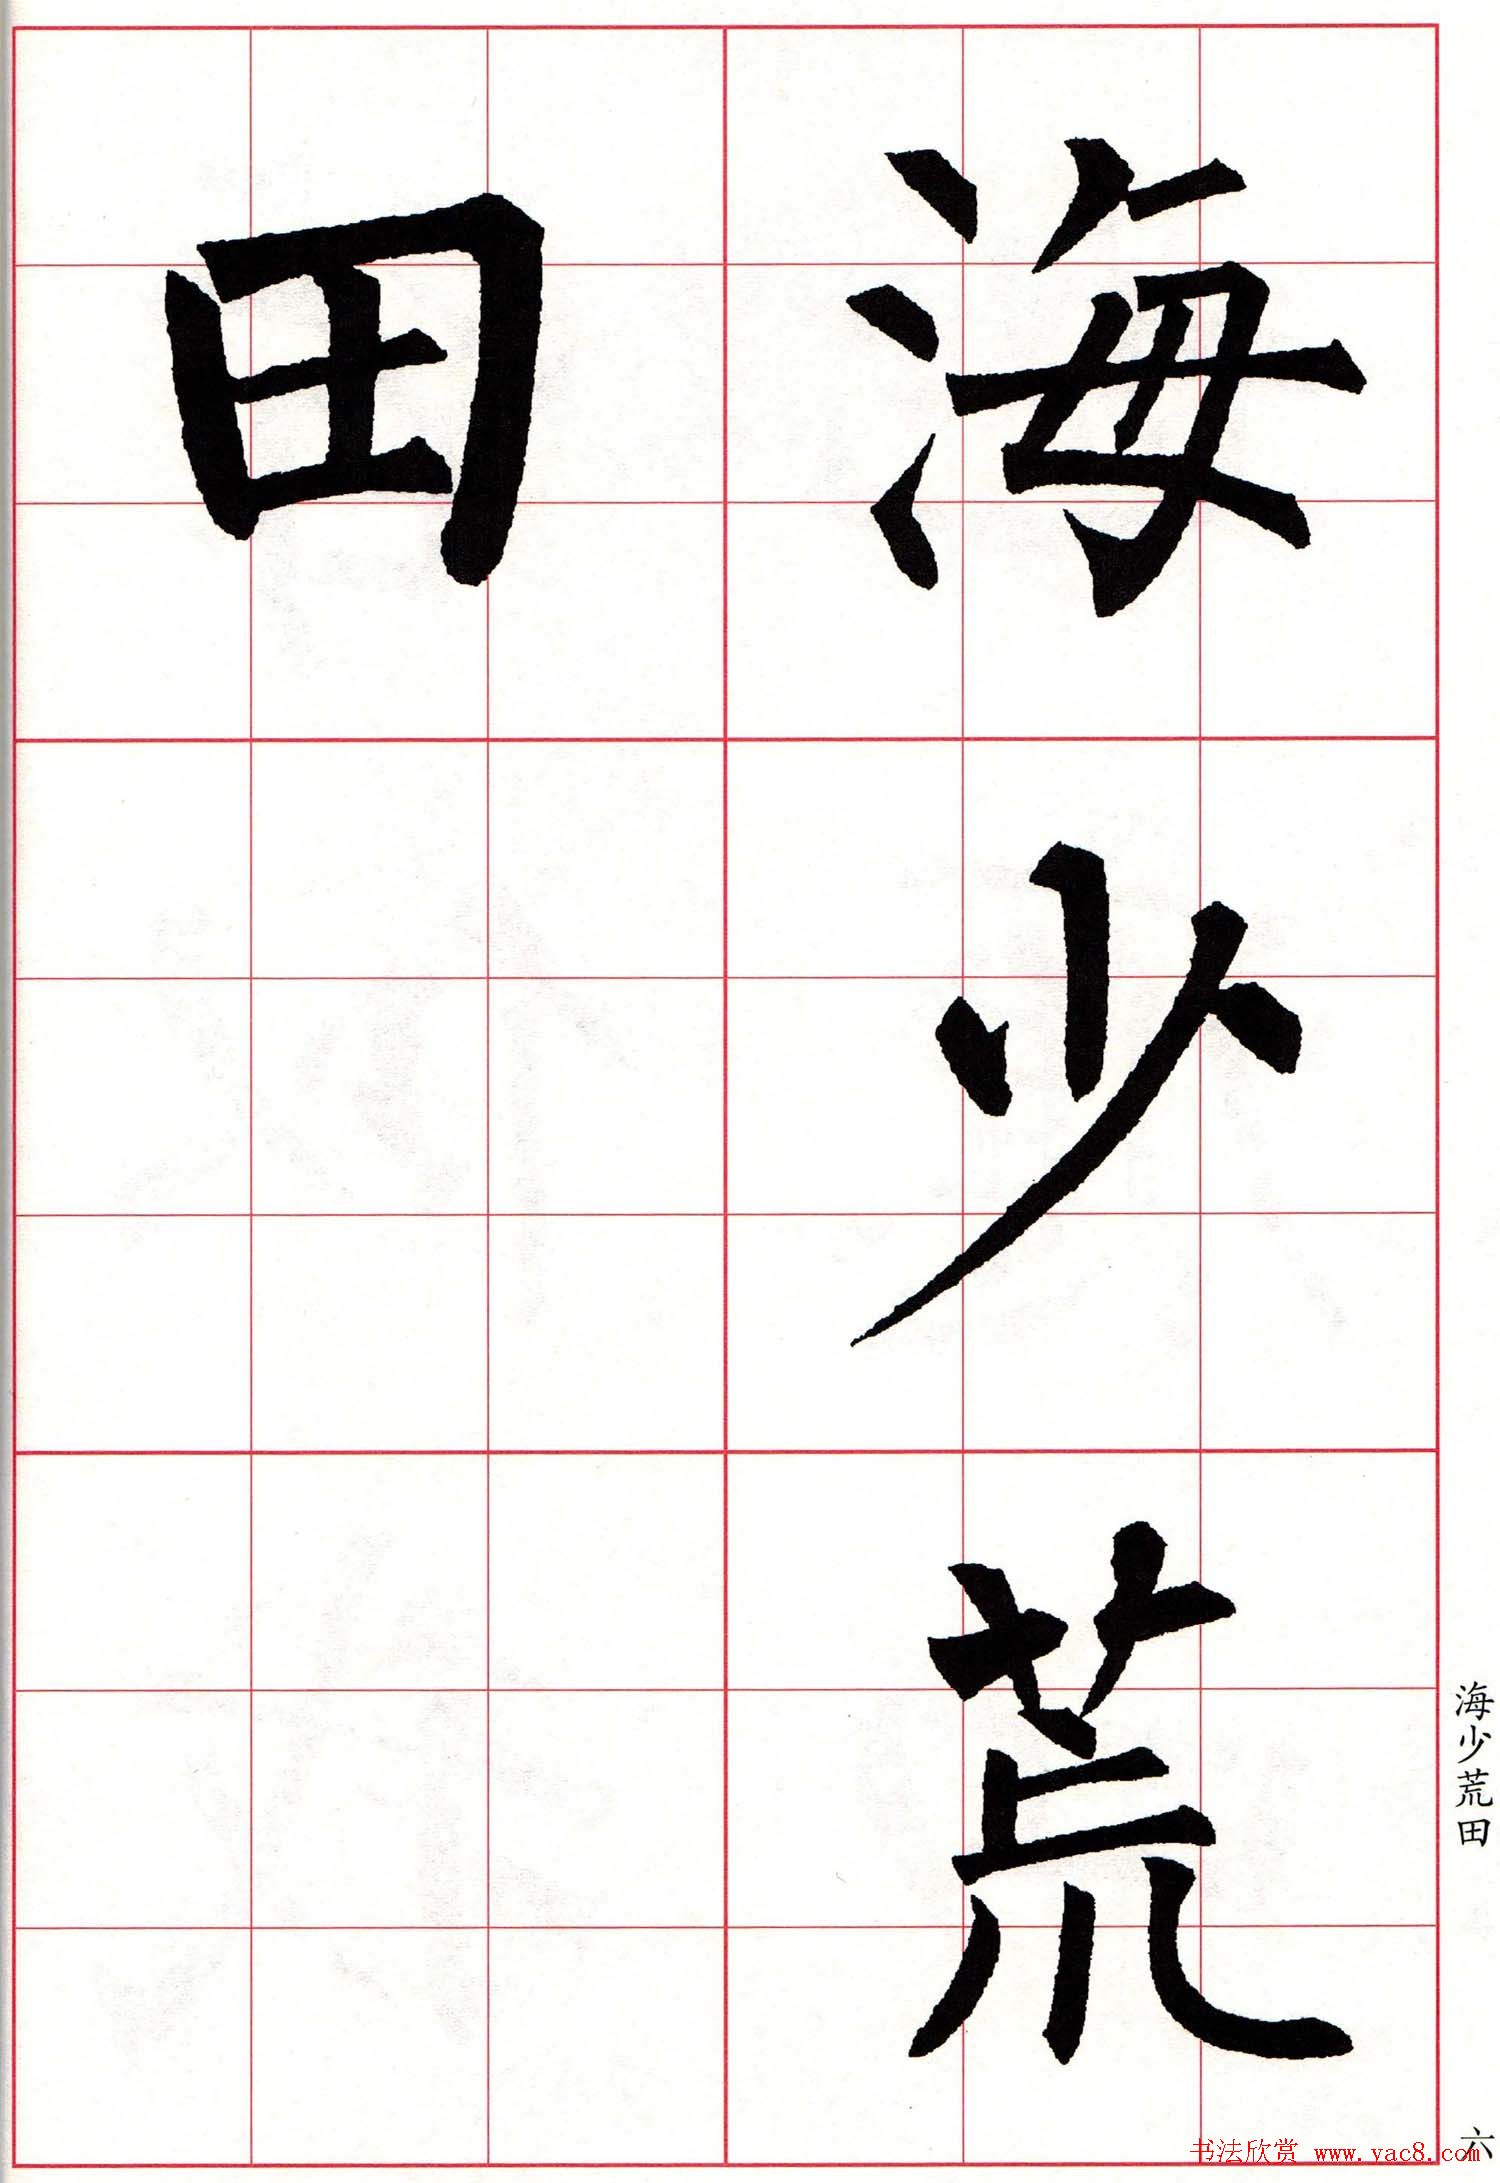 海少荒
田
海少荒田
六
书法欣赏 www.yac8.com